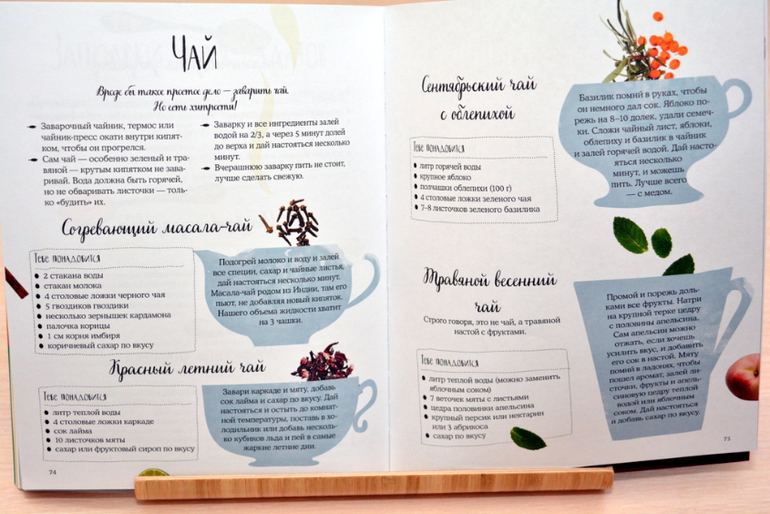 Чай
Вроде бы такое простое дело — заварить чай.
Но есть хитрости!
Заварочный чайник, термос или
чайник-пресс окати внутри кипят-
ком, чтобы он прогрелся.
Сам чай — особенно зеленый и тра-
вяной — крутым кипятком не зава-
ривай. Вода должна быть горячей,
но не обваривать листочки — толь-
ко «будить» их.
Заварку и все ингредиенты залей
водой на 2/3, а через 5 минут долей
до верха и дай настояться несколько
минут.
Вчерашнюю заварку пить не стоит,
лучше сделать свежую.
Согревающий масала-чай
Тебе понадобится
2 стакана воды
стакан молока
4 столовые ложки черного чая
5 гвоздиков гвоздики
несколько зернышек кардамона
палочка корицы
1 см корня имбиря
коричневый сахар по вкусу
Подогрей молоко и воду и залей
все специи, сахар и чайные листья,
дай настояться несколько минут.
Масала-чай родом из Индии, там его
пьют, не добавляя новый кипяток.
Нашего объема жидкости хватит
на 3 чашки.
Красный летний чай
Тебе понадобится
литр теплой воды
4 столовые ложки каркаде
сок лайма
10 листочков мяты
сахар или фруктовый сироп по вкусу
Завари каркаде и мяту, добавь
сок лайма и сахар по вкусу. Дай
настояться и остыть до комнат-
ной температуры, поставь в хо-
лодильник или добавь несколь-
ко кубиков льда и пей в самые
жаркие летние дни.
74
Сентябрьский чай
с облепихой
Тебе понадобится
литр горячей воды
крупное яблоко
полчашки облепихи (100 г)
4 столовые ложки зеленого чая
7–8 листочков зеленого базилика
Базилик помни в руках, чтобы
он немного дал сок. Яблоко по-
режь на 8–10 долек, удали семеч-
ки. Сложи чайный лист, яблоки,
облепиху и базилик в чайник
и залей горячей водой. Дай насто-
яться несколько
минут, и можешь
пить. Лучше всего
— с медом.
Травяной весенний
чай
Строго говоря, это не чай, а травяной
настой с фруктами.
Тебе понадобится
литр теплой воды (можно заменить
яблочным соком)
7 веточек мяты с листьями
цедра половинки апельсина
крупный персик или нектарин
или 3 абрикоса
сахар по вкусу
Промой и порежь доль-
ками все фрукты. Натри
на крупной терке цедру
с половины апельсина.
Сам апельсин можно
отжать, если хочешь
усилить вкус, и добавить
его сок в настой. Мяту
помни в ладонях, чтобы
пошел аромат, залей ли-
сточки, фрукты и апель-
синовую цедру теплой
водой или яблочным
соком. Дай настояться
и добавь сахар по вкусу.
75